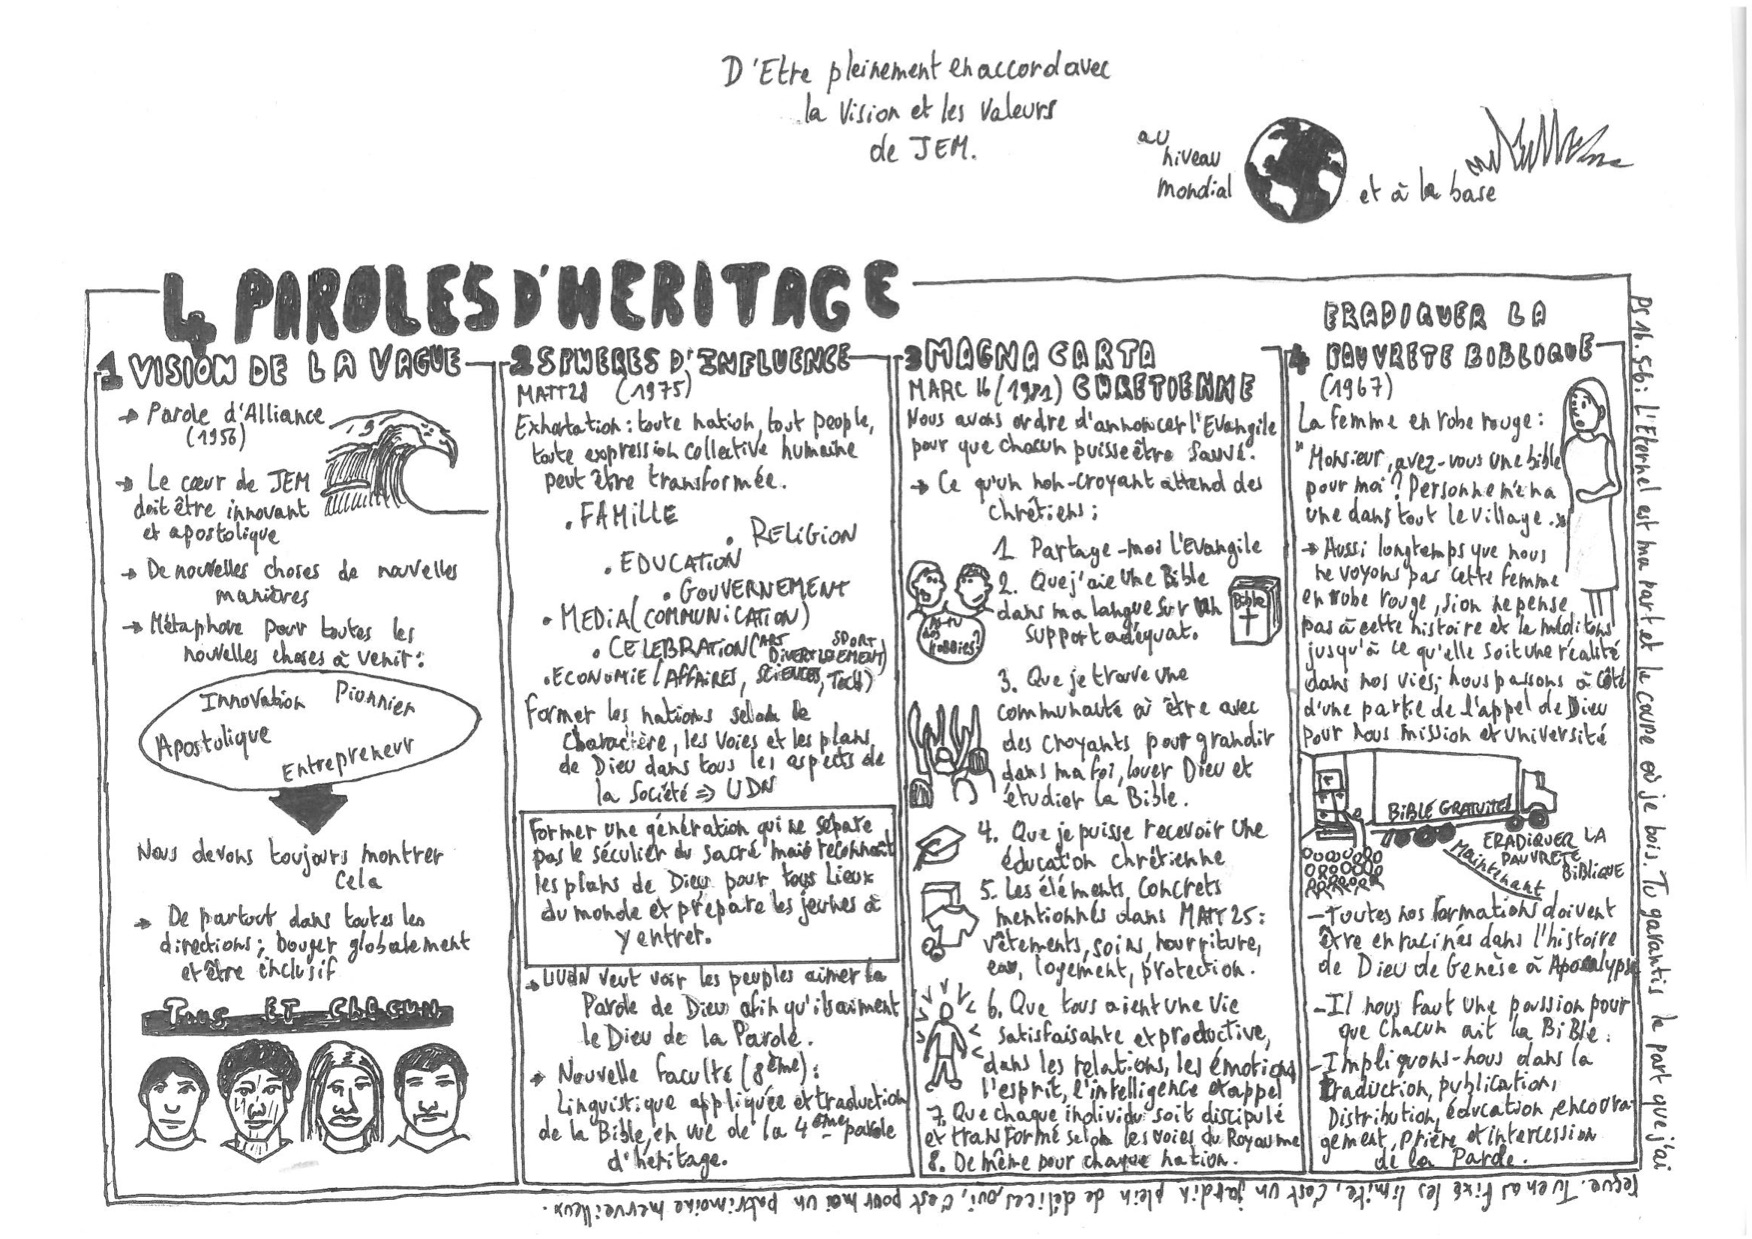 D'Etre pleinement en accord avec
la Vision et les Valeurs
de JEM.
au
niveau
mondial
et à la base
4 PAROLES D'HERITAGE
1 VISION DE LA VAGUE
→ Parole d'Alliance
(1956)
→ Le cœur de JEM
doit être innovant
et apostolique
→ De nouvelles choses de nouvelles
manières
→ Métaphore pour toutes les
nouvelles choses à venir :
Innovation Pionnier
Apostolique
Entrepreneur
Nous devons toujours montrer
Cela
→ De partout dans toutes les
directions ; bouger globalement
et être inclusif
TOUS ET CHACUN
2 SPHERES D'INFLUENCE
MATT 28 (1975)
Exhortation : toute nation, tout people,
toute expression collective humaine
peut être transformée.
• FAMILLE
• RELIGION
• EDUCATION
• GOUVERNEMENT
• MEDIA (COMMUNICATION)
• CELEBRATION (ART SPORT
DIVERTISSEMENT)
• ECONOMIE (AFFAIRES, SCIENCES, TECH)
Former les nations selon le
Charactère, les voies et les plans
de Dieu dans tous les aspects de
la Société => UDN
Former une génération qui ne sépare
pas le séculier du sacré mais reconnait
les plans de Dieu pour tous lieux
du monde et prépare les jeunes à
y entrer.
→ UUDN veut voir les peuples aimer la
Parole de Dieu afin qu'ils aiment
le Dieu de la Parole.
→ Nouvelle faculté (8ème) :
Linguistique appliquée et traduction
de la Bible, en vue de la 4ème parole
d'héritage.
3 MAGNA CARTA
MARC 16 (1981) CHRETIENNE
Nous avons ordre d'annoncer l'Evangile
pour que chacun puisse être Sauvé.
→ Ce qu'un non-croyant attend des
chrétiens :
1. Partage-moi l'Evangile
2. Que j'aie Une Bible
dans ma langue sur un
Support adéquat.
As-tu
des
hobbies?
Bible
3. Que je trouve une
communauté où être avec
des croyants pour grandir
dans ma foi, louer Dieu et
étudier la Bible.
4. Que je puisse recevoir une
éducation chrétienne
5. Les éléments concrets
mentionnés dans MATT 25 :
vêtements, soins, nourriture,
eau, logement, protection.
6. Que tous aient une vie
satisfaisante et productive,
dans les relations, les émotions
l'esprit, l'intelligence et appel
7. Que chaque individu soit discipulé
et transformé selon les voies du Royaume
8. De même pour chaque nation.
ERADIQUER LA
4 PAUVRETE BIBLIQUE
(1967)
La femme en robe rouge :
"Monsieur, avez-vous une bible
pour moi ? Personne n'en a
une dans tout le village."
→ Aussi longtemps que nous
ne voyons pas cette femme
en robe rouge, si on ne pense
pas à cette histoire et le méditons
jusqu'à ce qu'elle soit une réalité
dans nos vies ; nous passons à côté
d'une partie de l'appel de Dieu
pour nous mission et université
BIBLE GRATUITE!
ERADIQUER LA
PAUVRETE
BIBLIQUE
Maintenant
- Toutes nos formations doivent
être enracinés dans l'histoire
de Dieu de Genèse à Apocalypse
- Il nous faut une passion pour
que chacun ait la BiBle.
- Impliquons-nous dans la
traduction, publication,
Distribution, éducation, encoura-
gement, prière et intercession
de la Parole.
Ps 16. 5-6 : L'Eternel est ma part et la coupe où je bois. Tu garantis la part que j'ai
reçue. Tu en as fixé les limite, c'est un jardin plein de délices, oui, c'est pour moi un patrimoine merveilleux.